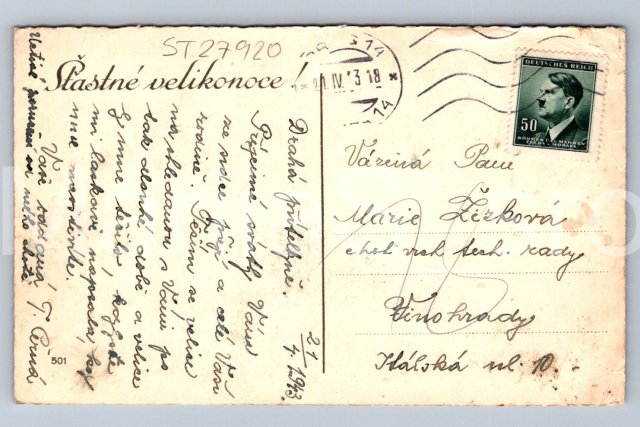 ST27920
Šťastné velikonoce!
21/4. 1943.
Drahá přítelkyně.
Příjemné svátky Vám
ze srdce přeji a celé Vaší
rodině. Těším se velice
na shledanou s Vámi po
tak dlouhé době a velice
by mne těšilo, kdybyste
mi laskavě napsala, kdy
mne navštívíte.
Vaše oddaná T. Černá
14
IV. 43 18
14
DEUTSCHES REICH
50
BÖHMEN U. MÄHREN
ČECHY A MORAVA
Vážená Paní
Marie Žižková
choť vrch. tech. rady
Vinohrady
Italská ul. 10.
501